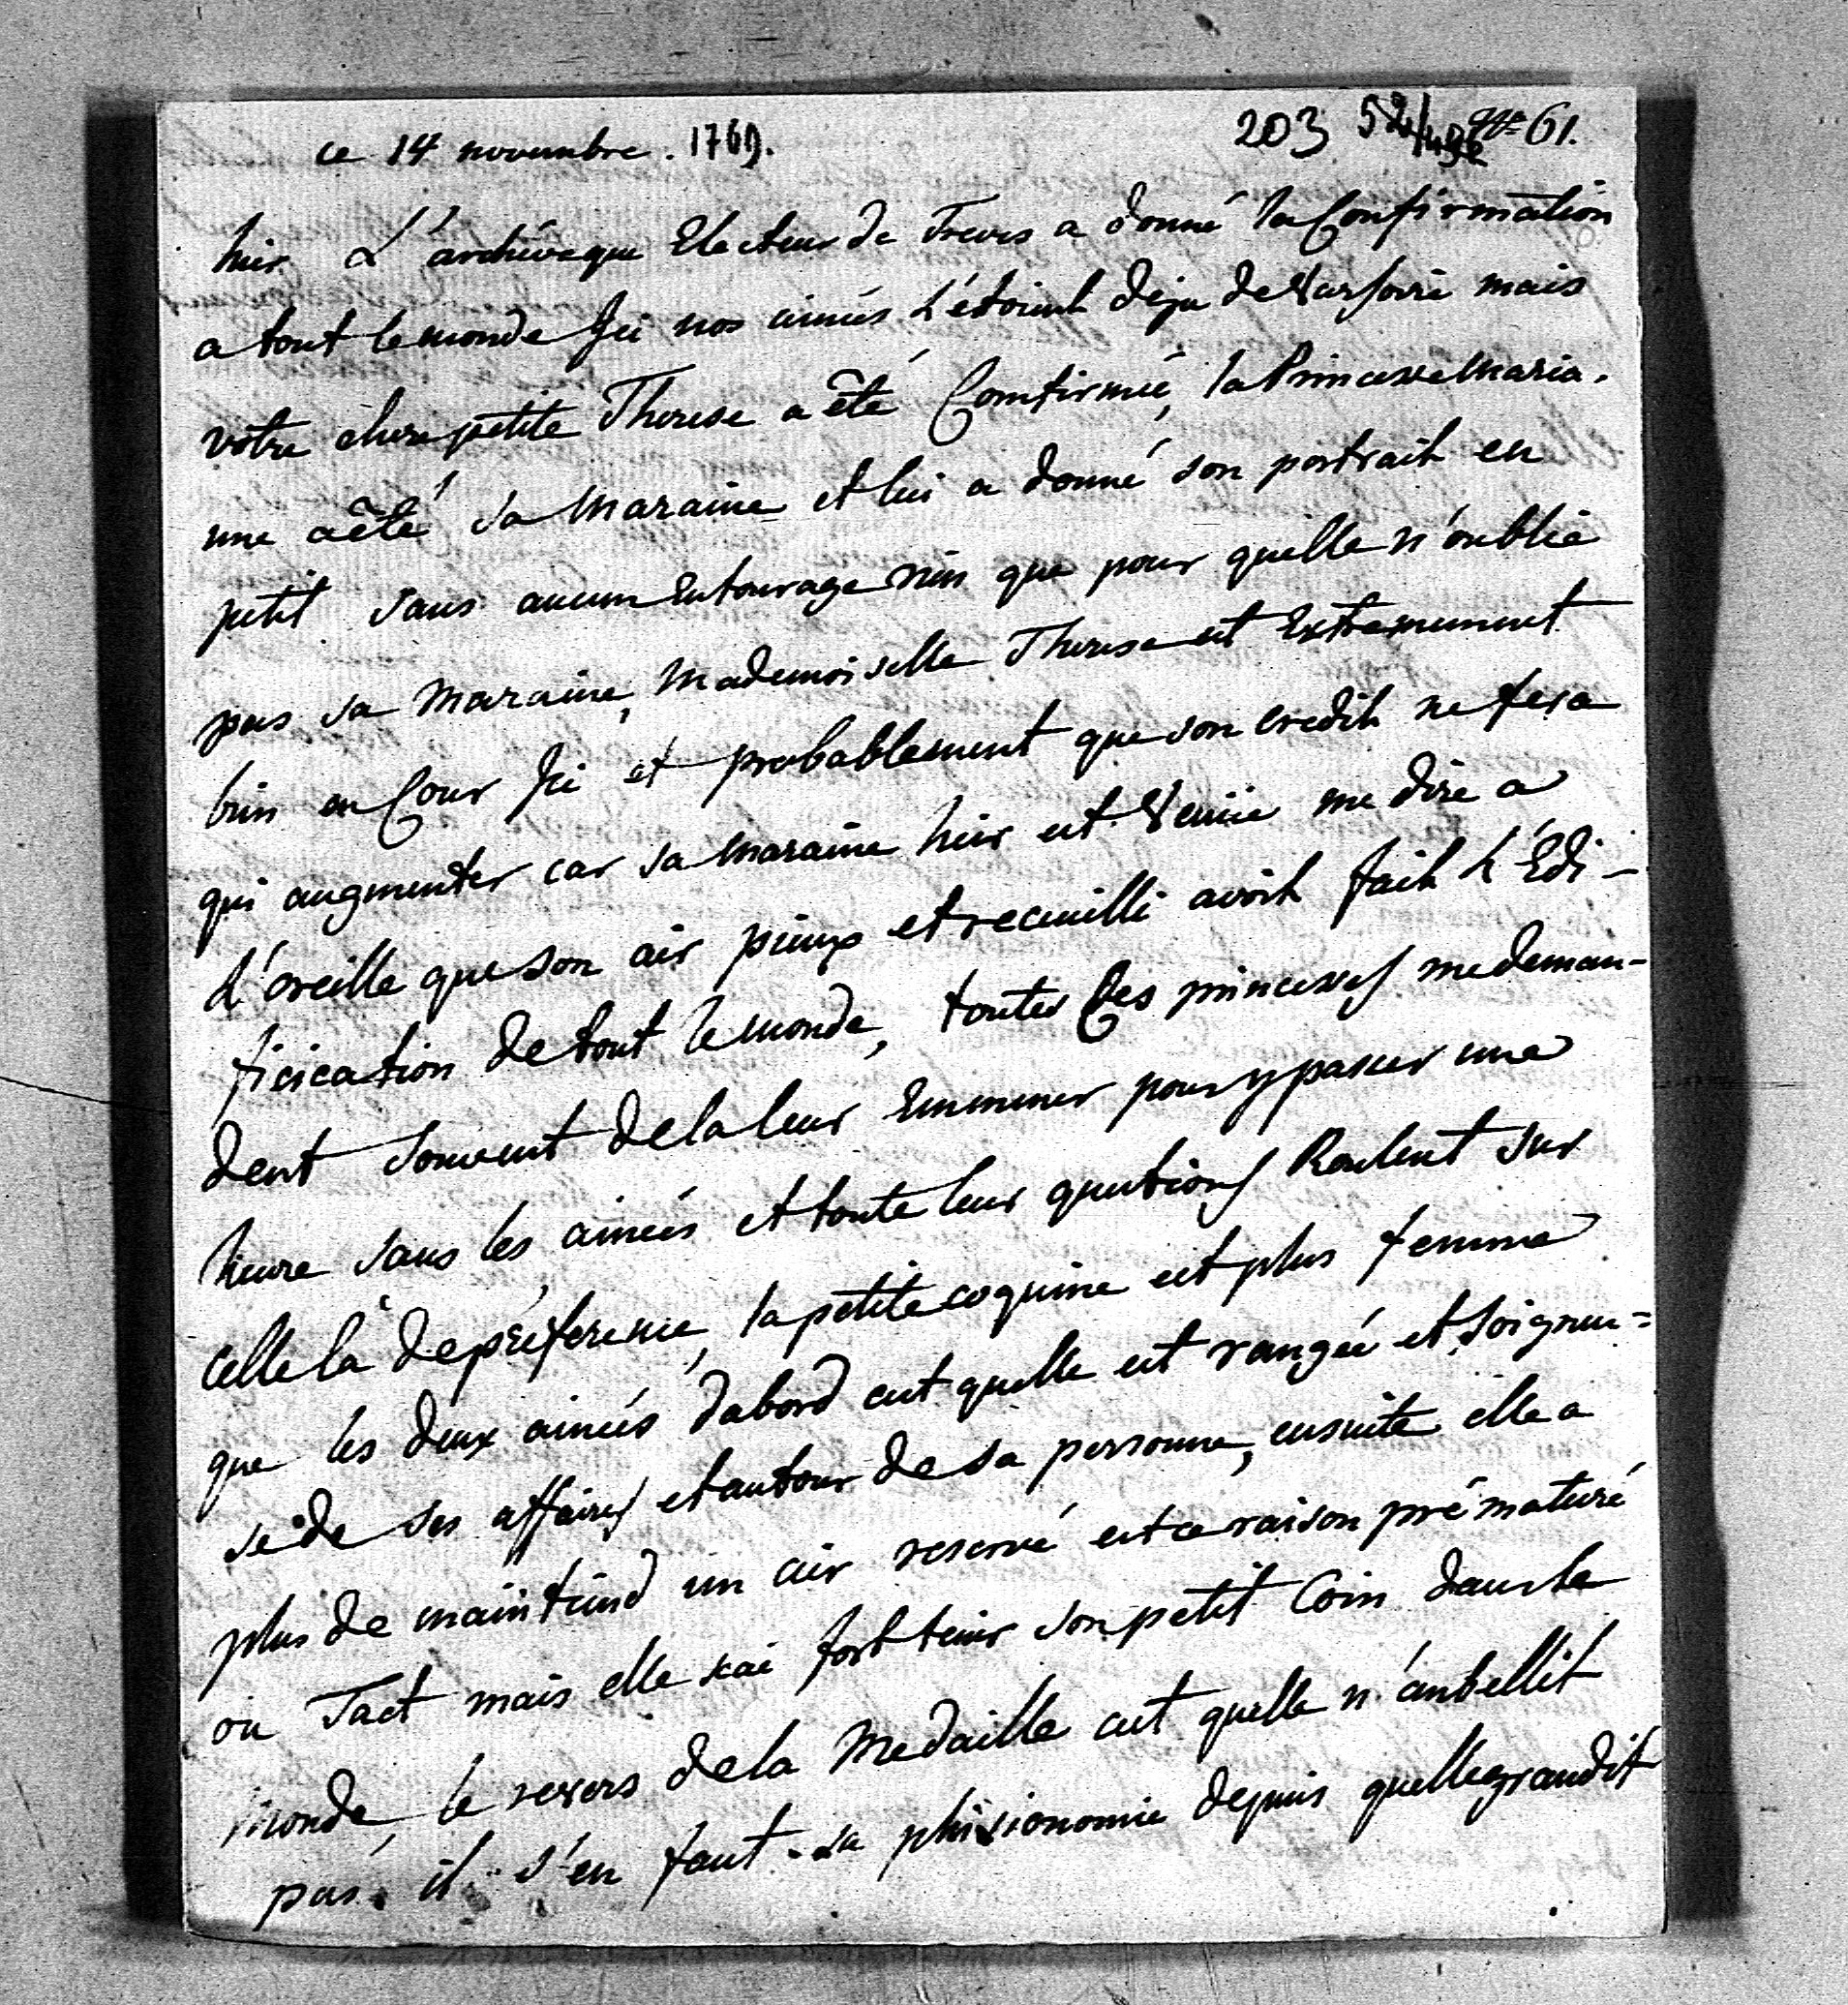 ce 14 novembre. 1769.
203 52/492 N° 61.
hier L'archéveque Electeur de Treves a donné la Confirmation
a tout le monde Ici nos ainées L'étoient deja de Varsovie mais
votre chere petite Therese a été Comfirmée, la Princesse Maria.
une a été sa Maraine et lui a donné son portrait en
petit sans aucun Entourage rien que pour quelle n'oublie
pas sa Maraine, Mademoiselle Therese est Extremement
bien en Cour Ici et probablement que son Credit ne fera
qui augmenter car sa Maraine hier est Venüe me dire a
L'oreille que son air pieux et recueilli avoit fait L'Edi-
ficication de tout le monde, toutes Ces princesses me deman-
dent souvent de la leur Emmener pour y passer une
heure sans les ainées et toute leur questions Roulent sur
celle la de préference, la petite coquine est plus femme
que les deux ainées dabord cest quelle est rangée et soigneu=
se de ses affaires et autour de sa personne, ensuite elle a
plus de maintiend un air reservé est ce raison prématuré
ou Tact mais elle scai fort tenir son petit Coin dans le
Monde, le revers de la Medaille cest quelle n'anbellit
pas. il s'en faut. sa phisionomie depuis quelle grandit